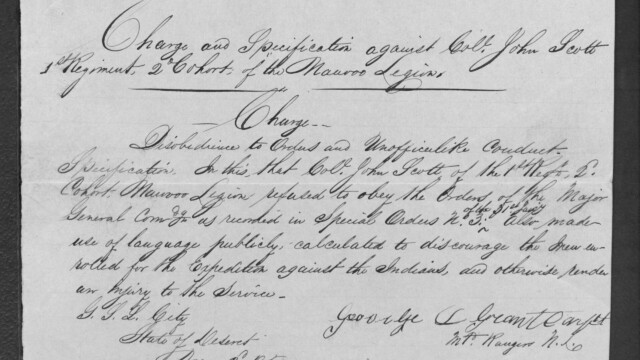 Charge and Specification against Colᵗ. John Scott
1st Regiment, 2ᵈ Cohort, of the Nauvoo Legion.
Charge
Disobedience to Orders and Unofficerlike conduct.
Specification. In this, that Colᵗ. John Scott, of the 1st Regᵗ, 2ᵈ.
Cohort, Nauvoo Legion refused to obey the Orders of the Major
General Comᵈᵍ as recorded in Special Orders N. 3, of the 31st Jany Also, made
use of language publicly, calculated to discourage the men en-
rolled for the Expedition against the Indians, and otherwise render
an Injury to the Service.
G. S. L. City
George D Grant Capt
State of Deseret
Mᵗᵈ. Rangers N. L.